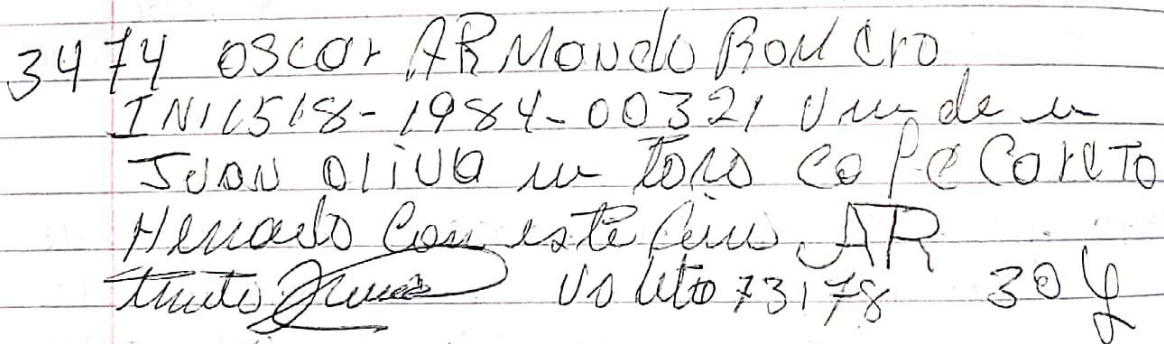 3474 OSCAr ARMando Romero
IN 1518-1984-00321 Vende a
JUAN OliVa un toro Cape Careto
Herrado con este fierro AR
boleto 73178 30 Y